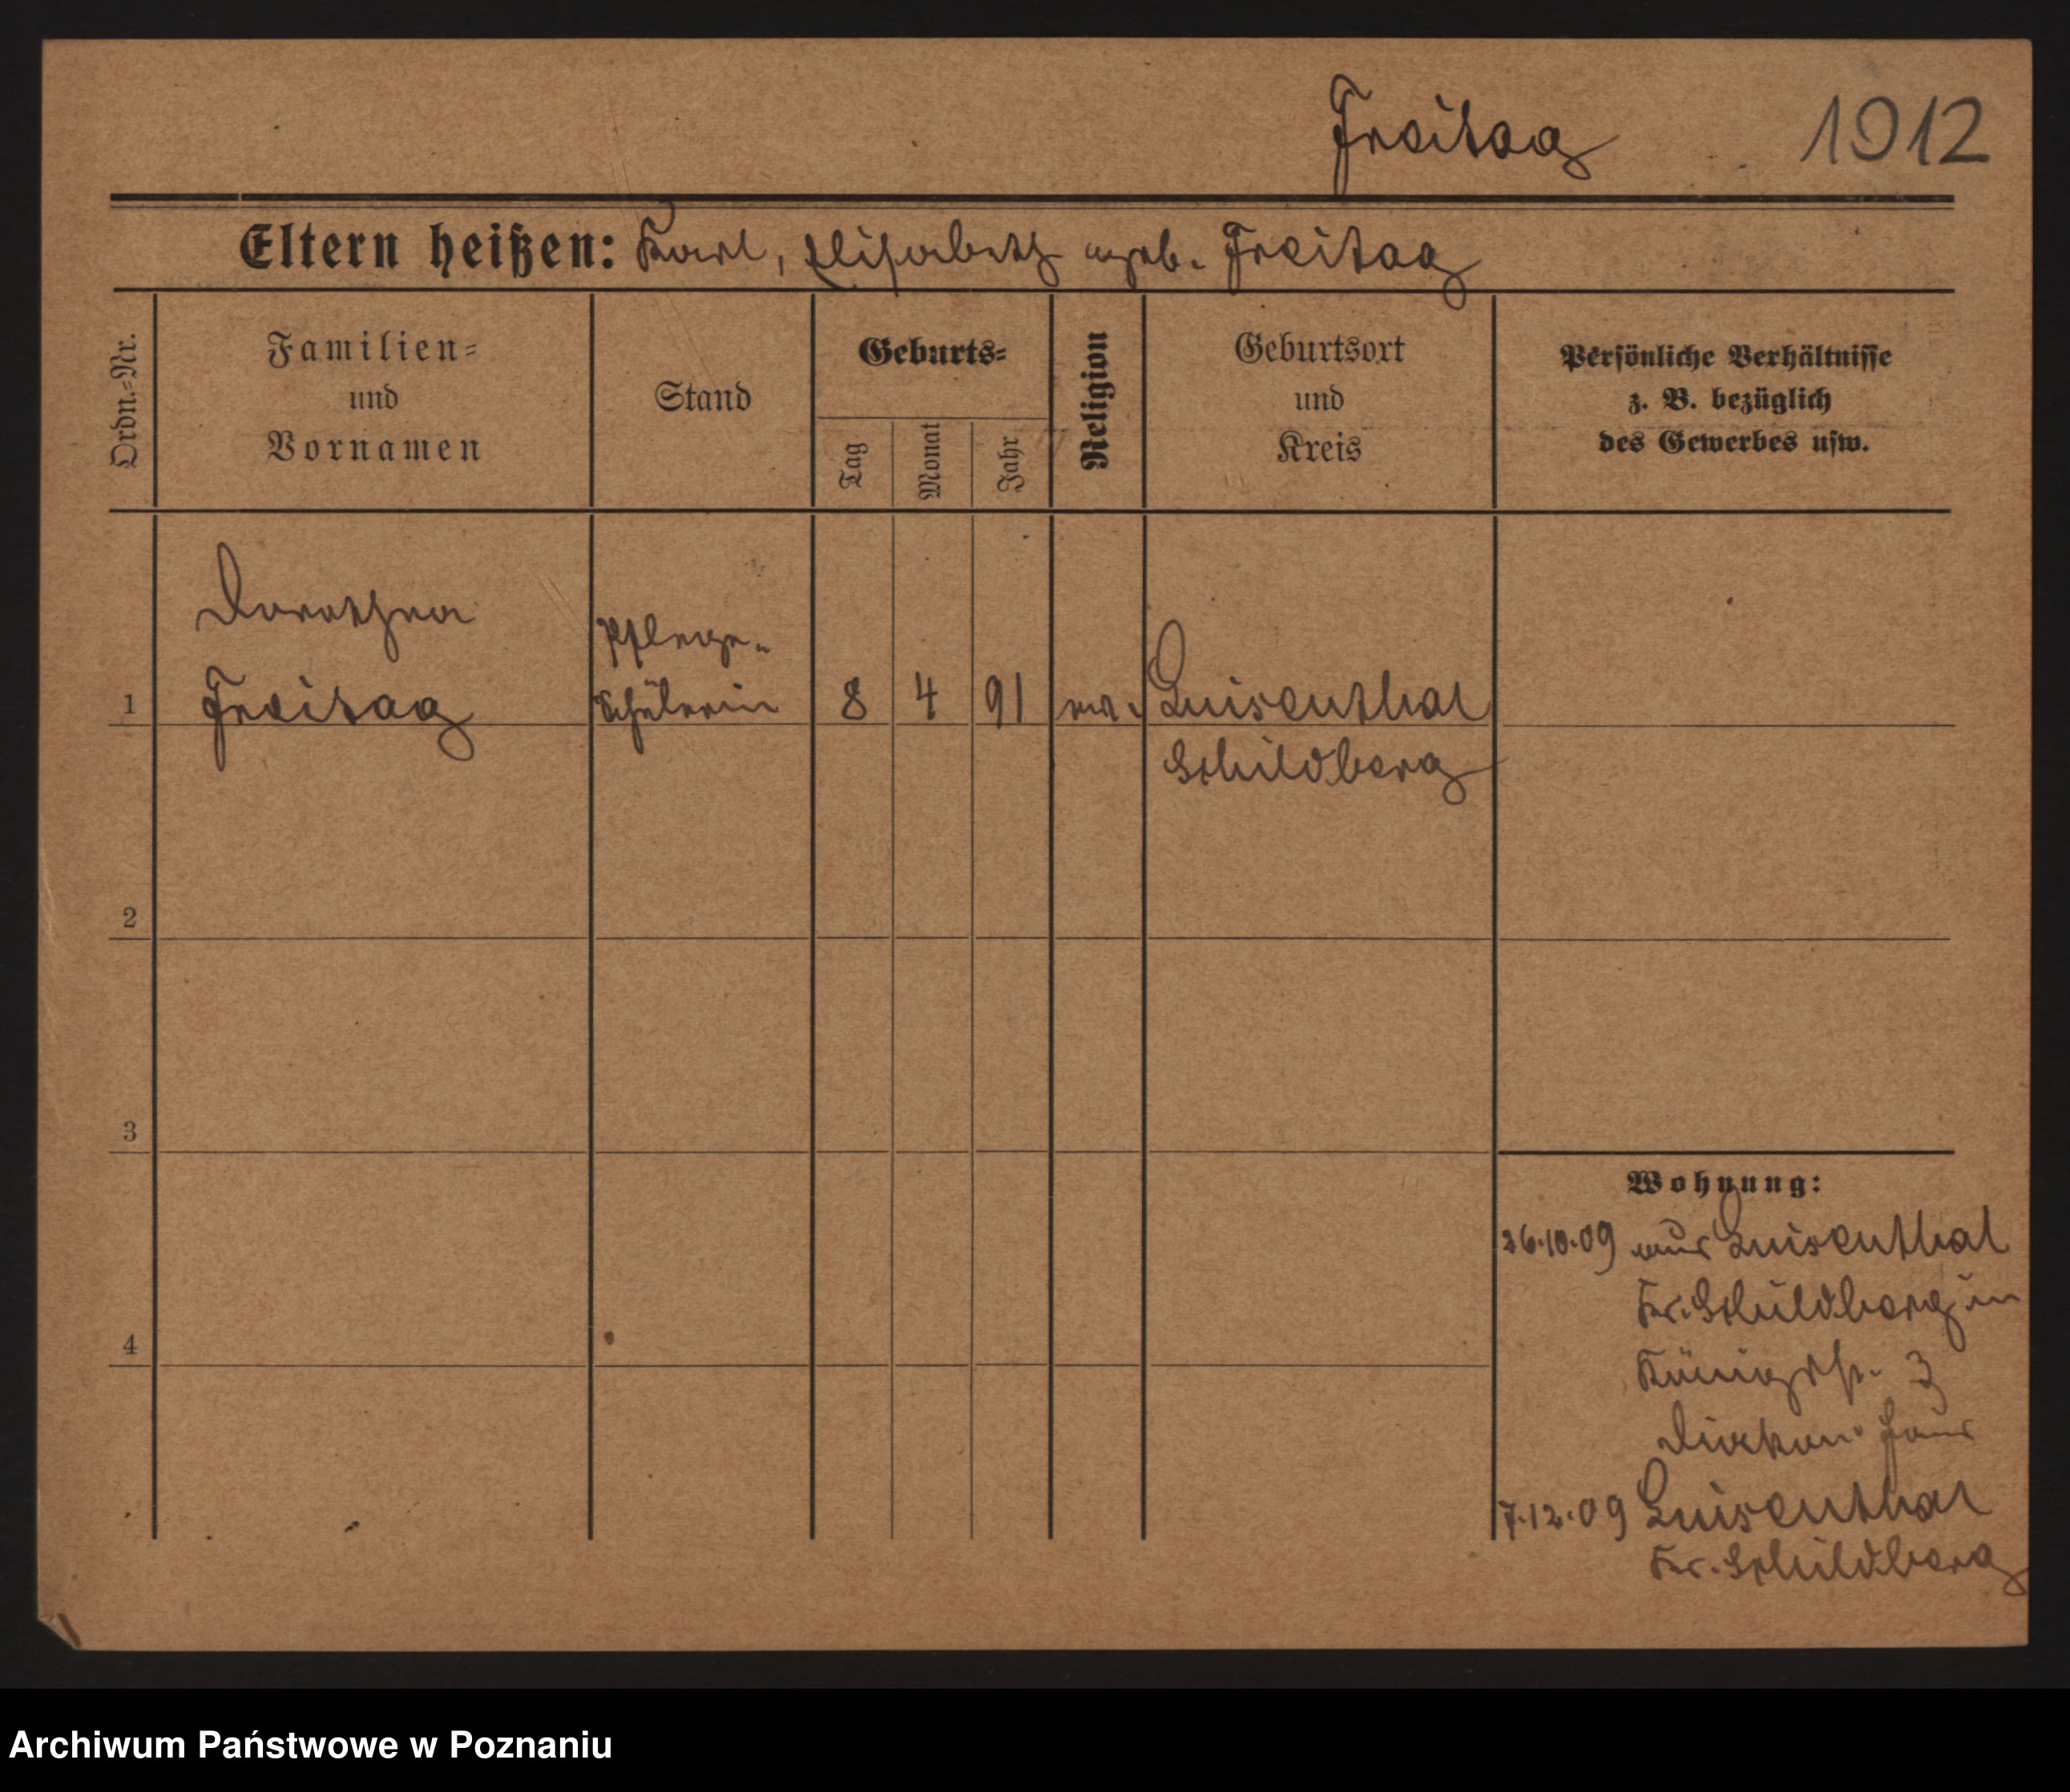 Freitag 1912
Eltern heißen: Karl, Elisabeth geb. Freitag
Ordn.-Nr.
Familien-
und
Vornamen
Stand
Geburts-
Tag
Monat
Jahr
Religion
Geburtsort
und
Kreis
Persönliche Verhältnisse
z. B. bezüglich
des Gewerbes usw.
Dorothea
Pflege-
1 Freitag Schülerin 8 4 91 ev. Luisenthal
Schildberg
2
3
Wohnung:
26.10.09 aus Luisenthal
Kr. Schildberg in
4
Königstr. 3
Diakon. Haus
7.12.09 Luisenthal
Kr. Schildberg
Archiwum Państwowe w Poznaniu